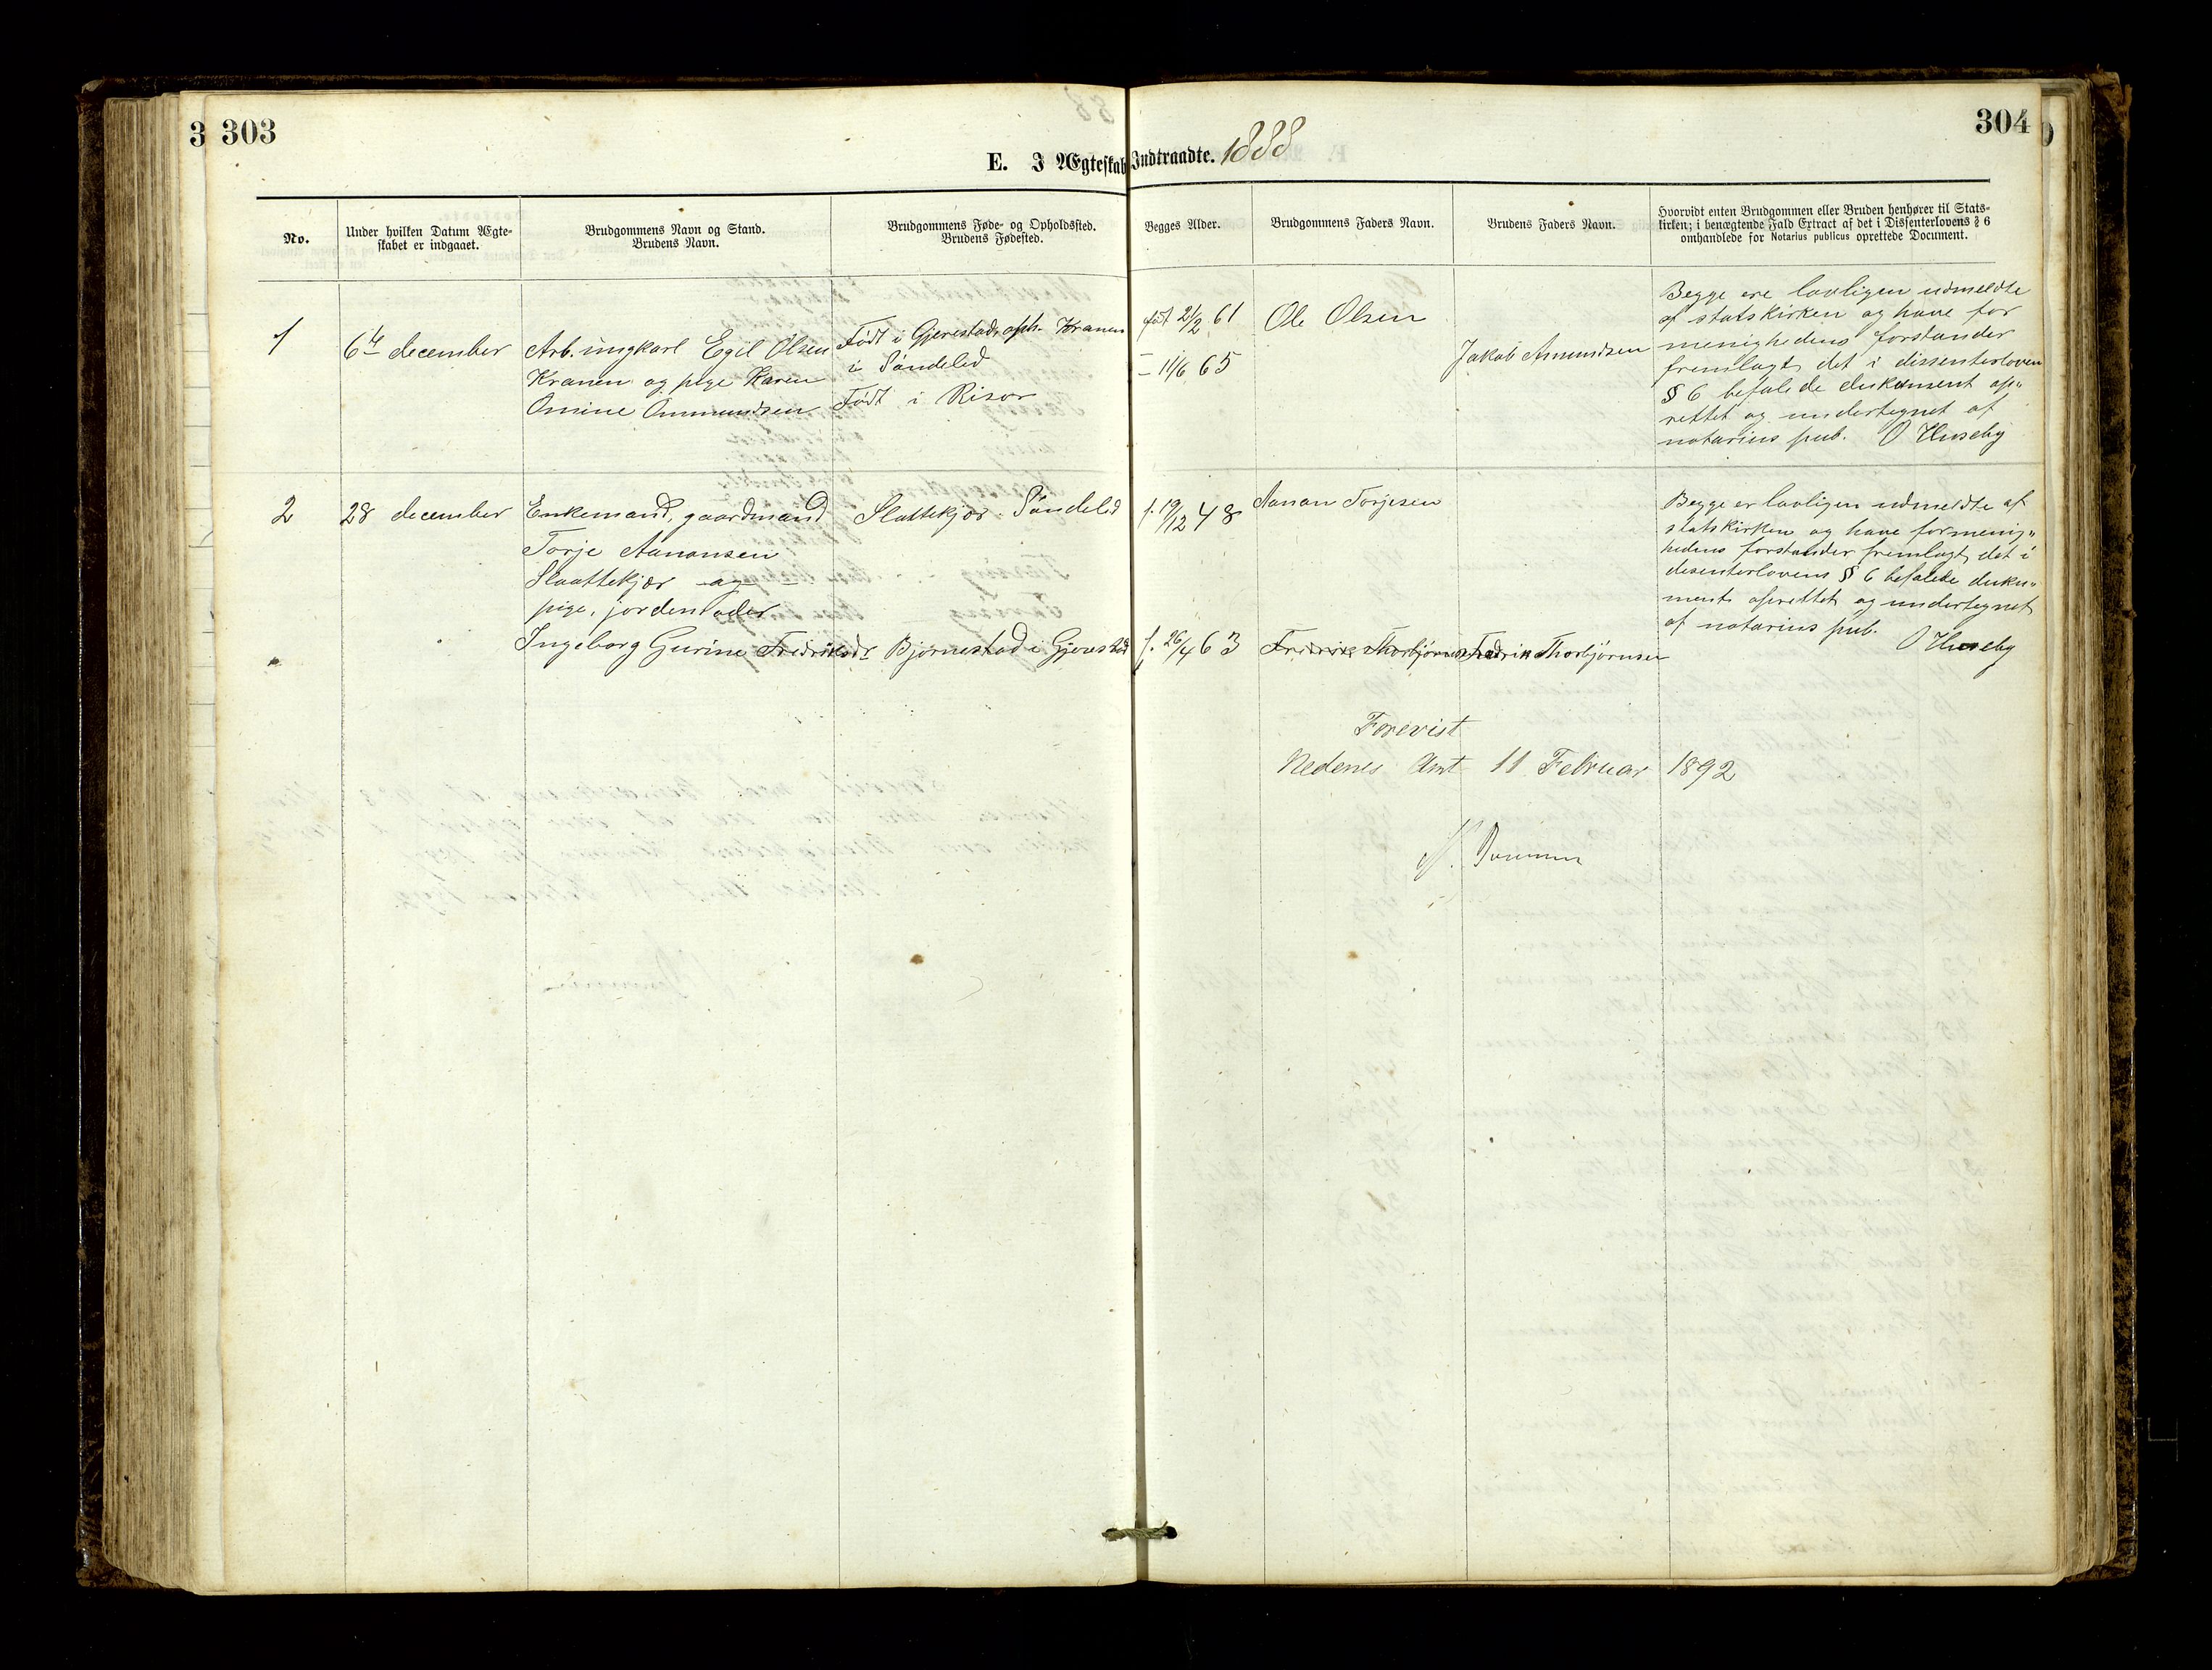 3 303
304
E. I Ægteskab Indtraadte. 1888
No.
Under hvilken Datum Ægte-
skabet er indgaaet.
Brudgommens Navn og Stand.
Brudens Navn.
Brudgommens Føde- og Opholdssted.
Brudens Fødested.
Begges Alder.
Brudgommens Faders Navn.
Brudens Faders Navn.
Hvorvidt enten Brudgommen eller Bruden henhører til Stats-
kirken; i benægtende Fald Extract af det i Dissenterlovens § 6
omhandlede for Notarius publicus oprettede Document.
1
6te december
Arb. ungkarl Egil Olsen
Kranen og pige Karen
Omine Ommundsen
Født i Gjerestad, oph. Kranen
i Søndeled
Født i Risør
født 21/2 61
— 11/6 65
Ole Olsen
Jakob Amundsen
Begge ere lovligen udmeldte
af statskirken og have for
menighedens forstander
fremlagt det i dissenterloven
§ 6 befalede dukument op„
rettet og undertegnet af
notarius pub. O Huseby
2
28 december
Enkemand, gaardmand
Torje Aanonsen
Slaattekjær og
pige, jordemoder
Ingeborg Gurine Fredriksdr
Slattekjær. Søndeled
Bjørnestad i Gjerestad
f. 19/12 48
f. 26/4 63
Aanon Torjesen
Fredrik Thorbjørnsen
Fredrik Thorbjørnsen
Begge er lovligen udmeldte af
statskirken og have for menig„
hedens forstander fremlagt det i
disenterlovens § 6 befalede duku„
ment oprettet og undertegnet
af notarius pub.
O Huseby
Forevist
Nedenes Amt 11 Februar 1892